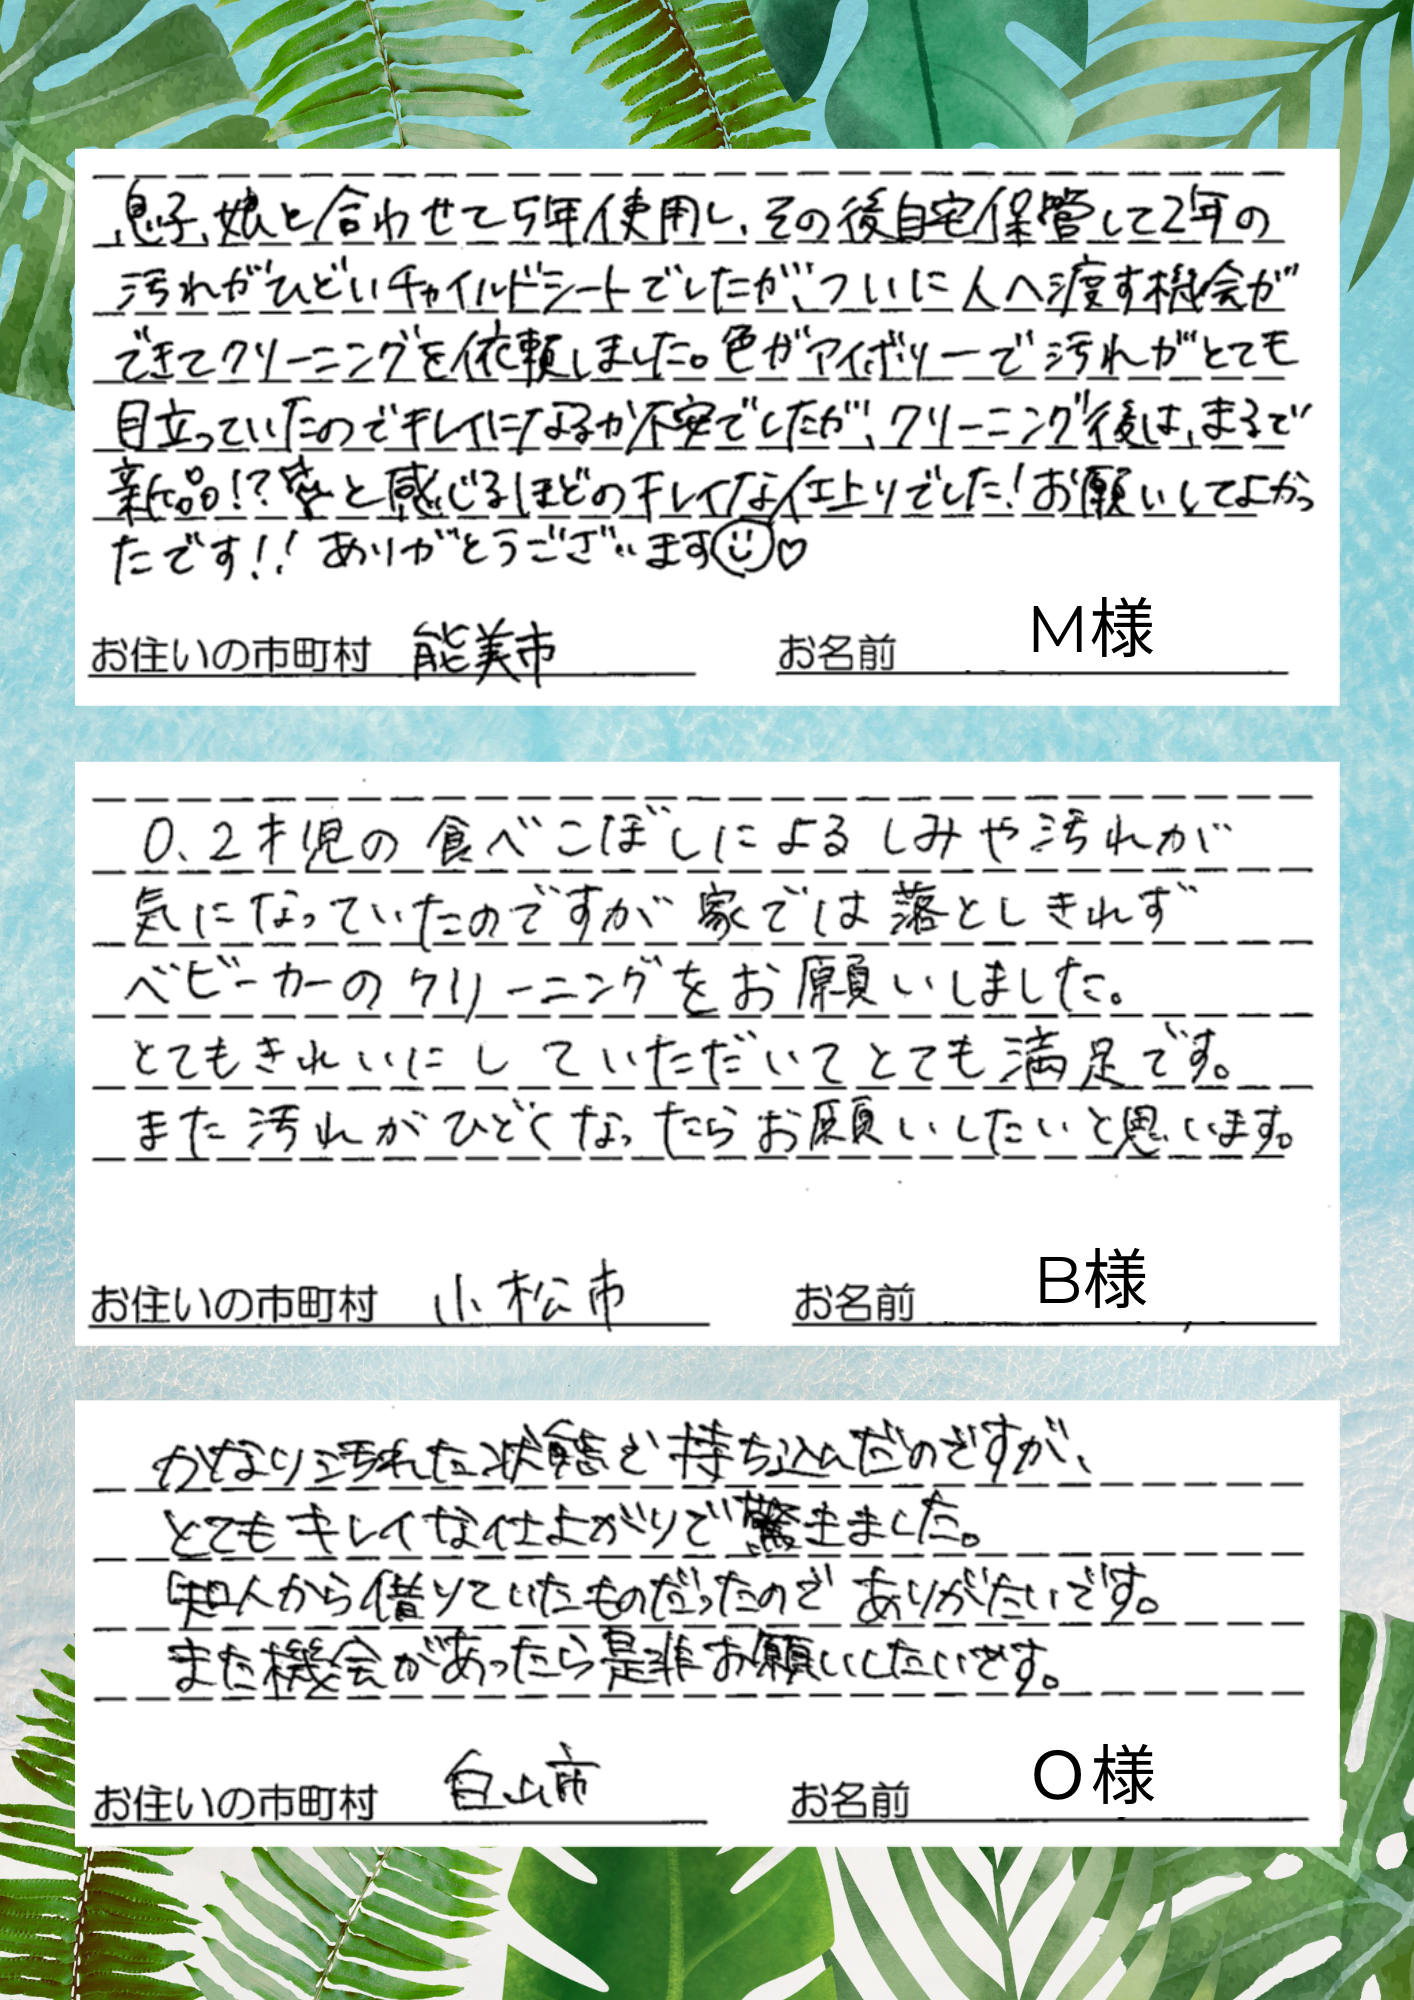 息子、娘と合わせて5年使用し、その後自宅保管して2年の
汚れがひどいチャイルドシートでしたが、ついに人へ渡す機会が
できてクリーニングを依頼しました。色がアイボリーで汚れがとても
目立っていたのでキレイになるか不安でしたが、クリーニング後は、まるで
新品!?と感じるほどのキレイな仕上りでした!お願いしてよかっ
たです!!ありがとうございます☺♡
お住いの市町村 能美市 お名前 M様
0、2才児の食べこぼしによるしみや汚れが
気になっていたのですが家では落としきれず
ベビーカーのクリーニングをお願いしました。
とてもきれいにしていただいてとても満足です。
また汚れがひどくなったらお願いしたいと思います。
お住いの市町村 小松市 お名前 B様
かなり汚れた状態で持ち込んだのですが、
とてもキレイな仕上がりで驚きました。
知人から借りていたものだったのでありがたいです。
また機会があったら是非お願いしたいです。
お住いの市町村 白山市 お名前 O様